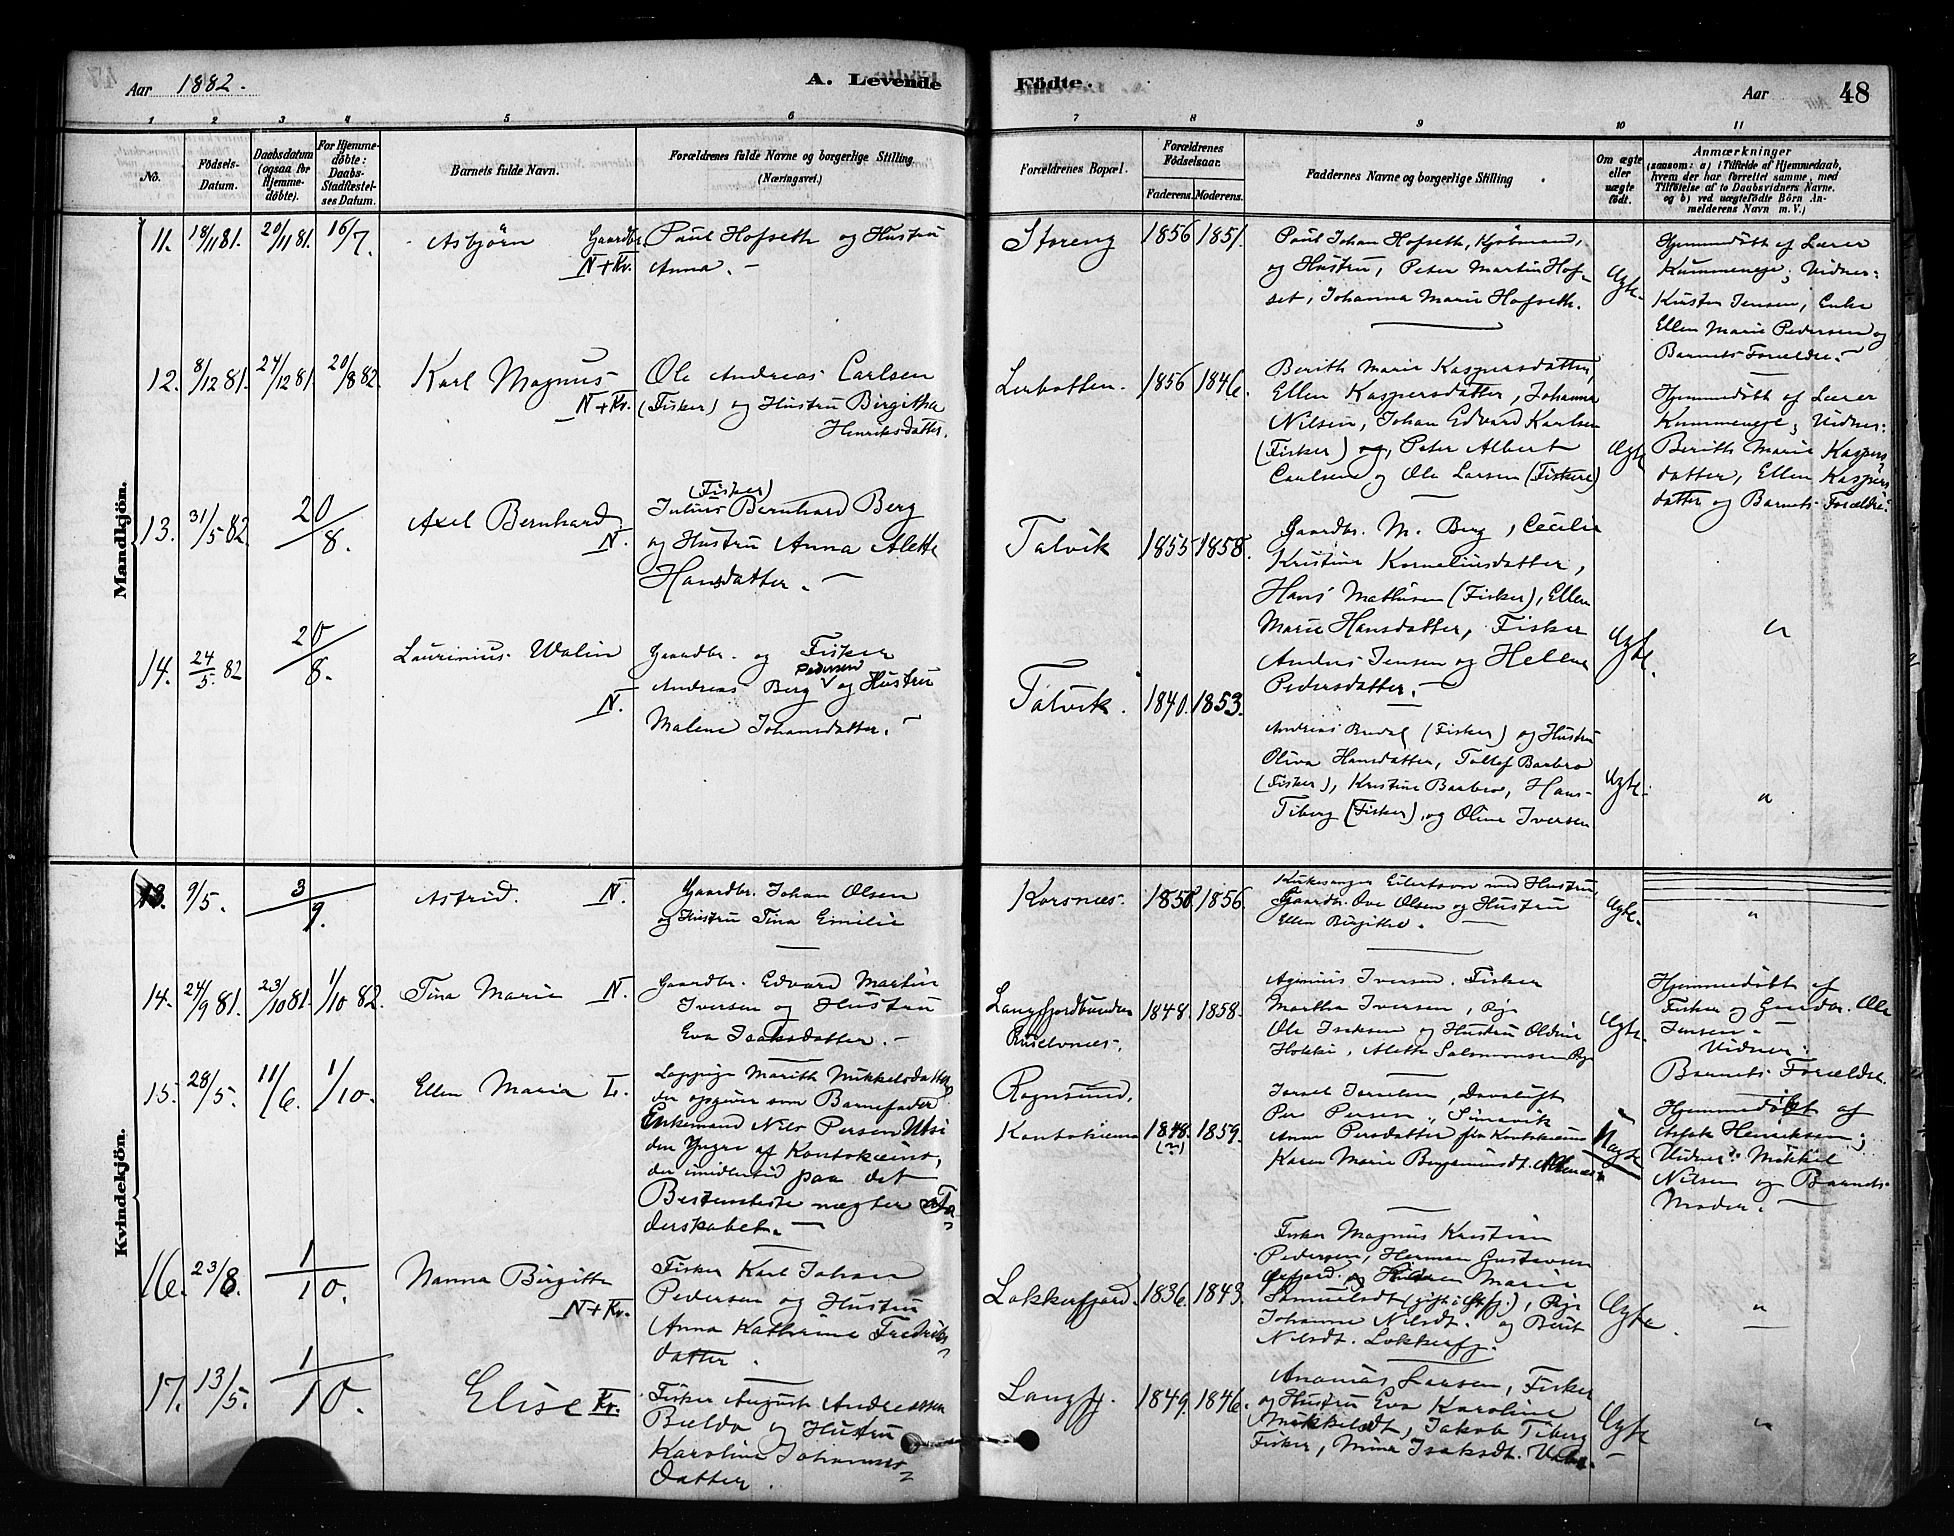 Aar 1882.
A. Levende
Fødte.
Aar
48
1
2
3
4
5
6
7
8
9
10
11
No.
Fødsels-
Datum.
Daabsdatum
(ogsaa for
Hjemme-
døbte).
For Hjemme-
døbte:
Daabs-
Stadfæstel-
ses Datum.
Barnets fulde Navn.
Forældrenes fulde Navne og borgerlige Stilling.
(Næringsvei.)
Forældrenes Bopæl.
Forældrenes
Fødselsaar.
Faderens.
Moderens.
Faddernes Navne og borgerlige Stilling
Om ægte
eller
uægte
født.
Anmærkninger
(saasom: a) i Tilfælde af Hjemmedaab,
hvem der har forrettet samme, med
Tilføielse af to Daabsvidners Navne.
og b) ved uægtefødte Børn An-
melderens Navn m. V.)
Mandkjön.
11. 18/11 81. 20/11 81. 16/7.
Asbjörn
N+Kv.
Gaardbr. Paul Hofseth og Hustru
Anna. -
Storeng
1856 1851.
Paul Johan Hofseth, Kjöbmand,
og Hustru, Peter Martin Hof-
set, Johanna Marie Hofseth.
Ægte.
Hjemmedöbt af Lærer
Kummeneje; Vidner:
Kirsten Jensen, Enke
Ellen Marie Pedersen og
Barnets Forældre. -
12. 8/12 81. 24/12 81. 20/8 82.
Karl Magnus
N+Kv.
Ole Andreas Carlsen
(Fisker) og Hustru Birgitha
Henriksdatter.
Lerbotten.
1856 1846.
Berith Marie Kaspersdatter,
Ellen Kaspersdatter, Johanna
Nilsen, Johan Edvard Karlsen
(Fisker) og, Peter Albert
Carlsen og Ole Larsen (Fiskere)
Ægte
Hjemmedöbt af Lærer
Kummeneje; Vidner:
Berith Marie Kaspers
datter, Ellen Kaspers
datter og Barnets Forældre.
13. 31/5 82. 20/8.
Axel Bernhard
N.
(Fisker)
Julius Bernhard Berg
og Hustru Anna Alette
Hansdatter. -
Talvik
1855 1858.
Gaardbr. M. Berg, Cecilie
Kristine Korneliusdatter,
Hans Mathisen (Fisker), Ellen
Marie Hansdatter, Fisker
Anders Jensen og Hellene
Pedersdatter. -
Ægte.
"
14. 24/5 82 20/8.
Laurinius Walin
N.
Gaardbr. og Fisker
Pedersen
Andreas Berg og Hustru
Malene Johansdatter. -
Talvik.
1840. 1853.
Andreas (Fisker) og Hustru
Oliva Hansdatter, Tollef Barbro
(Fisker), Kristine Barbro, Hans
Tiberg (Fisker), og Oline Iversen
Ægte.
"
Kvindekjön.
13. 9/5. 3/9.
Astrid.
N.
Gaardbr. Johan Olsen
og Hustru Tina Emilie
Korsnæs.
1850. 1856.
Kirkesanger Eilertsen med Hustru
Gaardbr. Ove Olsen og Hustru
Ellen Birgitte.
Ægte.
"
14. 24/9 81. 23/10 81. 1/10 82.
Tina Marie
N.
Gaardbr. Edvard Martin
Iversen og Hustru
Eva Isaksdatter. -
Langfjordbunden
1848. 1858.
Iversen. Fisker
Martha Iversen, Pige
Ole Isaksen og Hustru
Alette Salomonsen Pige
Ægte.
Hjemmedöbt af
Fisker og Gaardbr. Ole
Jensen. -
Vidner:
Barnets Forældre.
15. 28/5. 11/6. 1/10.
Ellen Maria
L.
Lappige Marith Mikkelsdatter
der opgiver som Barnefader
Enkemand Nils Persen Utsi
den Yngre af Kautokeino,
der imidlertid paa det
Bestemteste nægter Fa-
derskabet. -
Rognsund.
Kautokeino
1848. 1859.
(?)
Israel Isaelsen,
Per Persen, Simavik
Anne Persdatter fra Kautokeino
Karen Marie Benjaminsdt.
Uægte
Hjemmedöbt af
Aslak Henriksen;
Vidner: Mikkel
Nilsen og Barnets
Moder. -
16. 23/8. 1/10.
Nanna Birgitte
N+Kv.
Fisker Karl Johan
Pedersen og Hustru
Anna Kathrine Fredriks-
datter.
Lokkerfjord.
1836. 1843.
Fisker Magnus Kristian
Pedersen, Herman Gustavsen
og Marie
Samuelsdt, Pige
Johanne Nilsdt. og Berit
Nilsdt. Lokkerfj.
Ægte.
"
17. 13/5. 1/10.
Elise
Kv.
Fisker August Andreassen
Bielda og Hustru
Karoline Johannes-
datter.
Langfj.
1849. 1846.
Ananias Larsen, Fisker
og Hustru Eva Karoline
Mikkelsdt, Jakob Tiberg
Fisker, Mina Isaksdt.
Ægte
"